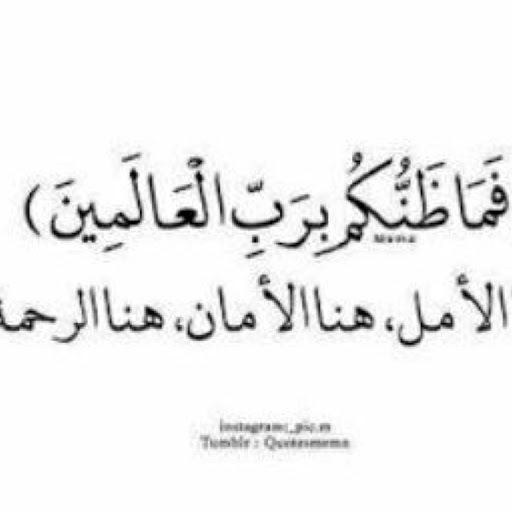 فَمَا ظَنُّكُم بِرَبِّ الْعَالَمِينَ )
الأمل، هنا الأمان، هنا الرحمة
Mema
instagram:_pic.m
Tumblr : Quotesmema